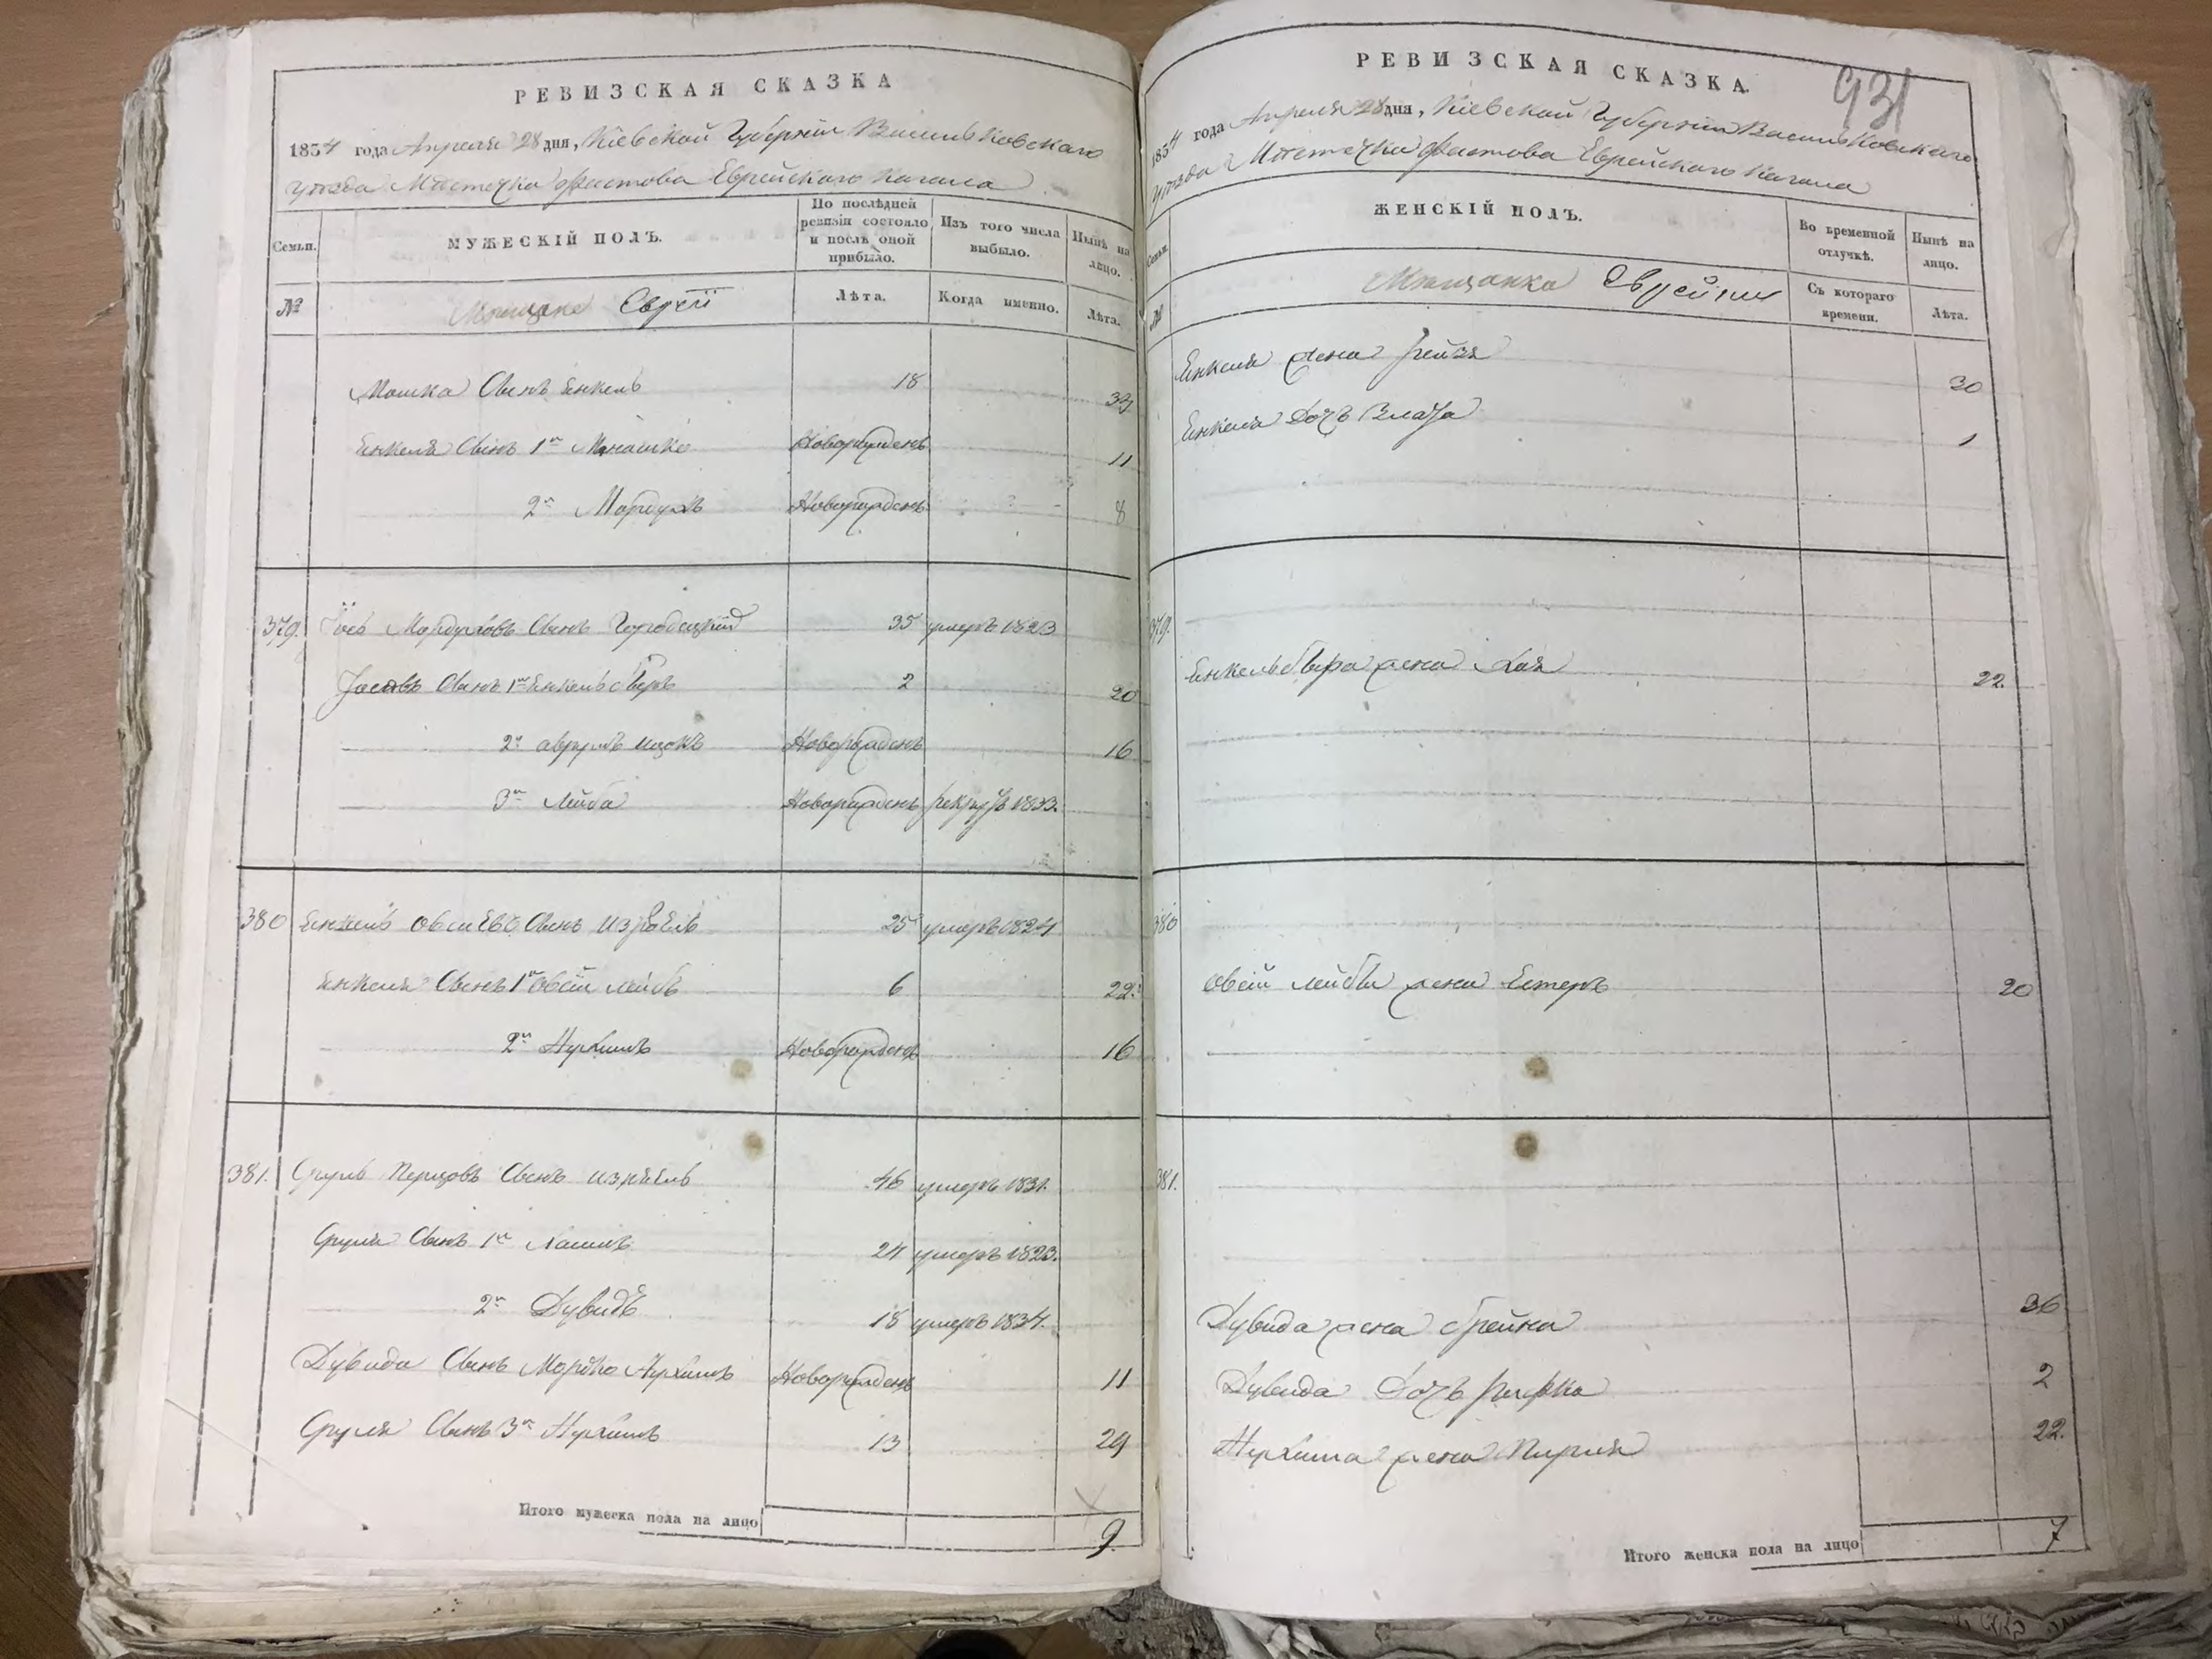 РЕВИЗСКАЯ СКАЗКА
1834 года Апреля 28 дня, Кіевской Губерніи Васильковскаго
уѣзда Мѣстечка Фастова Еврейскаго Кагала
Семьи.
МУЖЕСКІЙ ПОЛЪ.
По послѣдней ревизіи состояло и послѣ оной прибыло.
Изъ того числа выбыло.
Нынѣ на лицо.
№
Мѣщане Евреи
Лѣта.
Когда именно.
Лѣта.
Мошка Сынъ Енкель 18
Енкеля Сынъ 1й Монашко Новорожденъ 11
2й Мордухъ Новорожденъ 8
379. Іось Мордуховъ Сынъ Городецкій 35 умеръ 1823
Сынъ 1й Енкель Беръ 2 20
2й Аврумъ Ицокъ Новорожденъ 16
3й Лейба Новорожденъ рекрутъ 1833.
380 Енкель Овсиевъ Сынъ Израель 25 умеръ 1824
Енкеля Сынъ 1й Овсій Лейбъ 6 22
2й Нухимъ Новорожденъ 16
381. Сруль Перцовъ Сынъ Израель 46 умеръ 1831.
Сруля Сынъ 1й Хаимъ 24 умеръ 1823.
2й Дувидъ 18 умеръ 1834.
Дувида Сынъ Мордко Нухимъ Новорожденъ 11
Сруля Сынъ 3й Нухимъ 13 29
Итого мужеска пола на лицо 9.
РЕВИЗСКАЯ СКАЗКА.
931
1834 года Апреля 28 дня, Кіевской Губерніи Васильковскаго
уѣзда Мѣстечка Фастова Еврейскаго Кагала
Семьи.
ЖЕНСКІЙ ПОЛЪ.
Во временной отлучкѣ.
Нынѣ на лицо.
№
Мѣщанки Еврейки
Съ котораго времени.
Лѣта.
Енкеля жена Рейзя 30
Енкеля Дочь Злата 1
379.
Енкель Бера жена Хая 22.
380
Овсій Лейбы жена Естеръ 20
381.
Дувида жена Брейна 36
Дувида Дочь Рифка 2
Нухима жена Пирля 22.
Итого женска пола на лицо 7